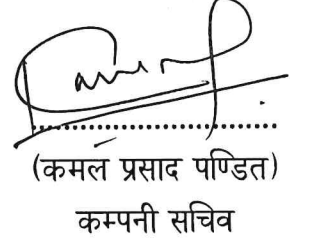 (कमल प्रसाद पण्डित)
कम्पनी सचिव